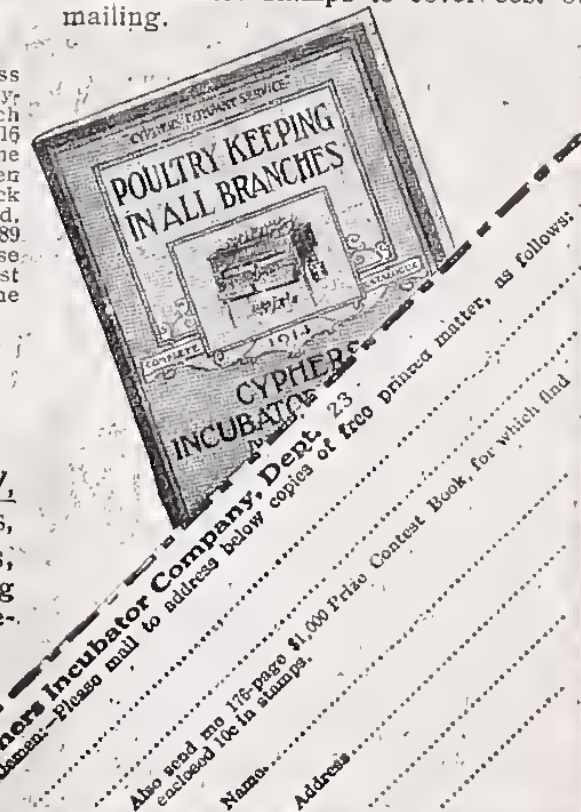 mailing.
ss
y.
ch
16
ne
en
ck
d.
89
se
st
ne
s,
s,
g
CYPHERS SERVICE
POULTRY KEEPING
IN ALL BRANCHES
COMPLETE
CATALOGUE
1914
CYPHERS
INCUBATOR
hers Incubator Company, Dept. 23
Please mail to address below copies of free printed matter, as follows:
Also send me 176-page $1,000 Prize Contest Book, for which find
enclosed 10c in stamps.
Name
Address